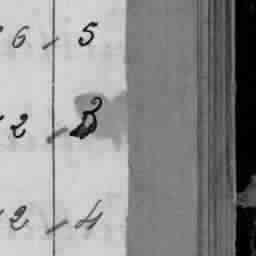 6 - 5
2 - 3
2 - 4